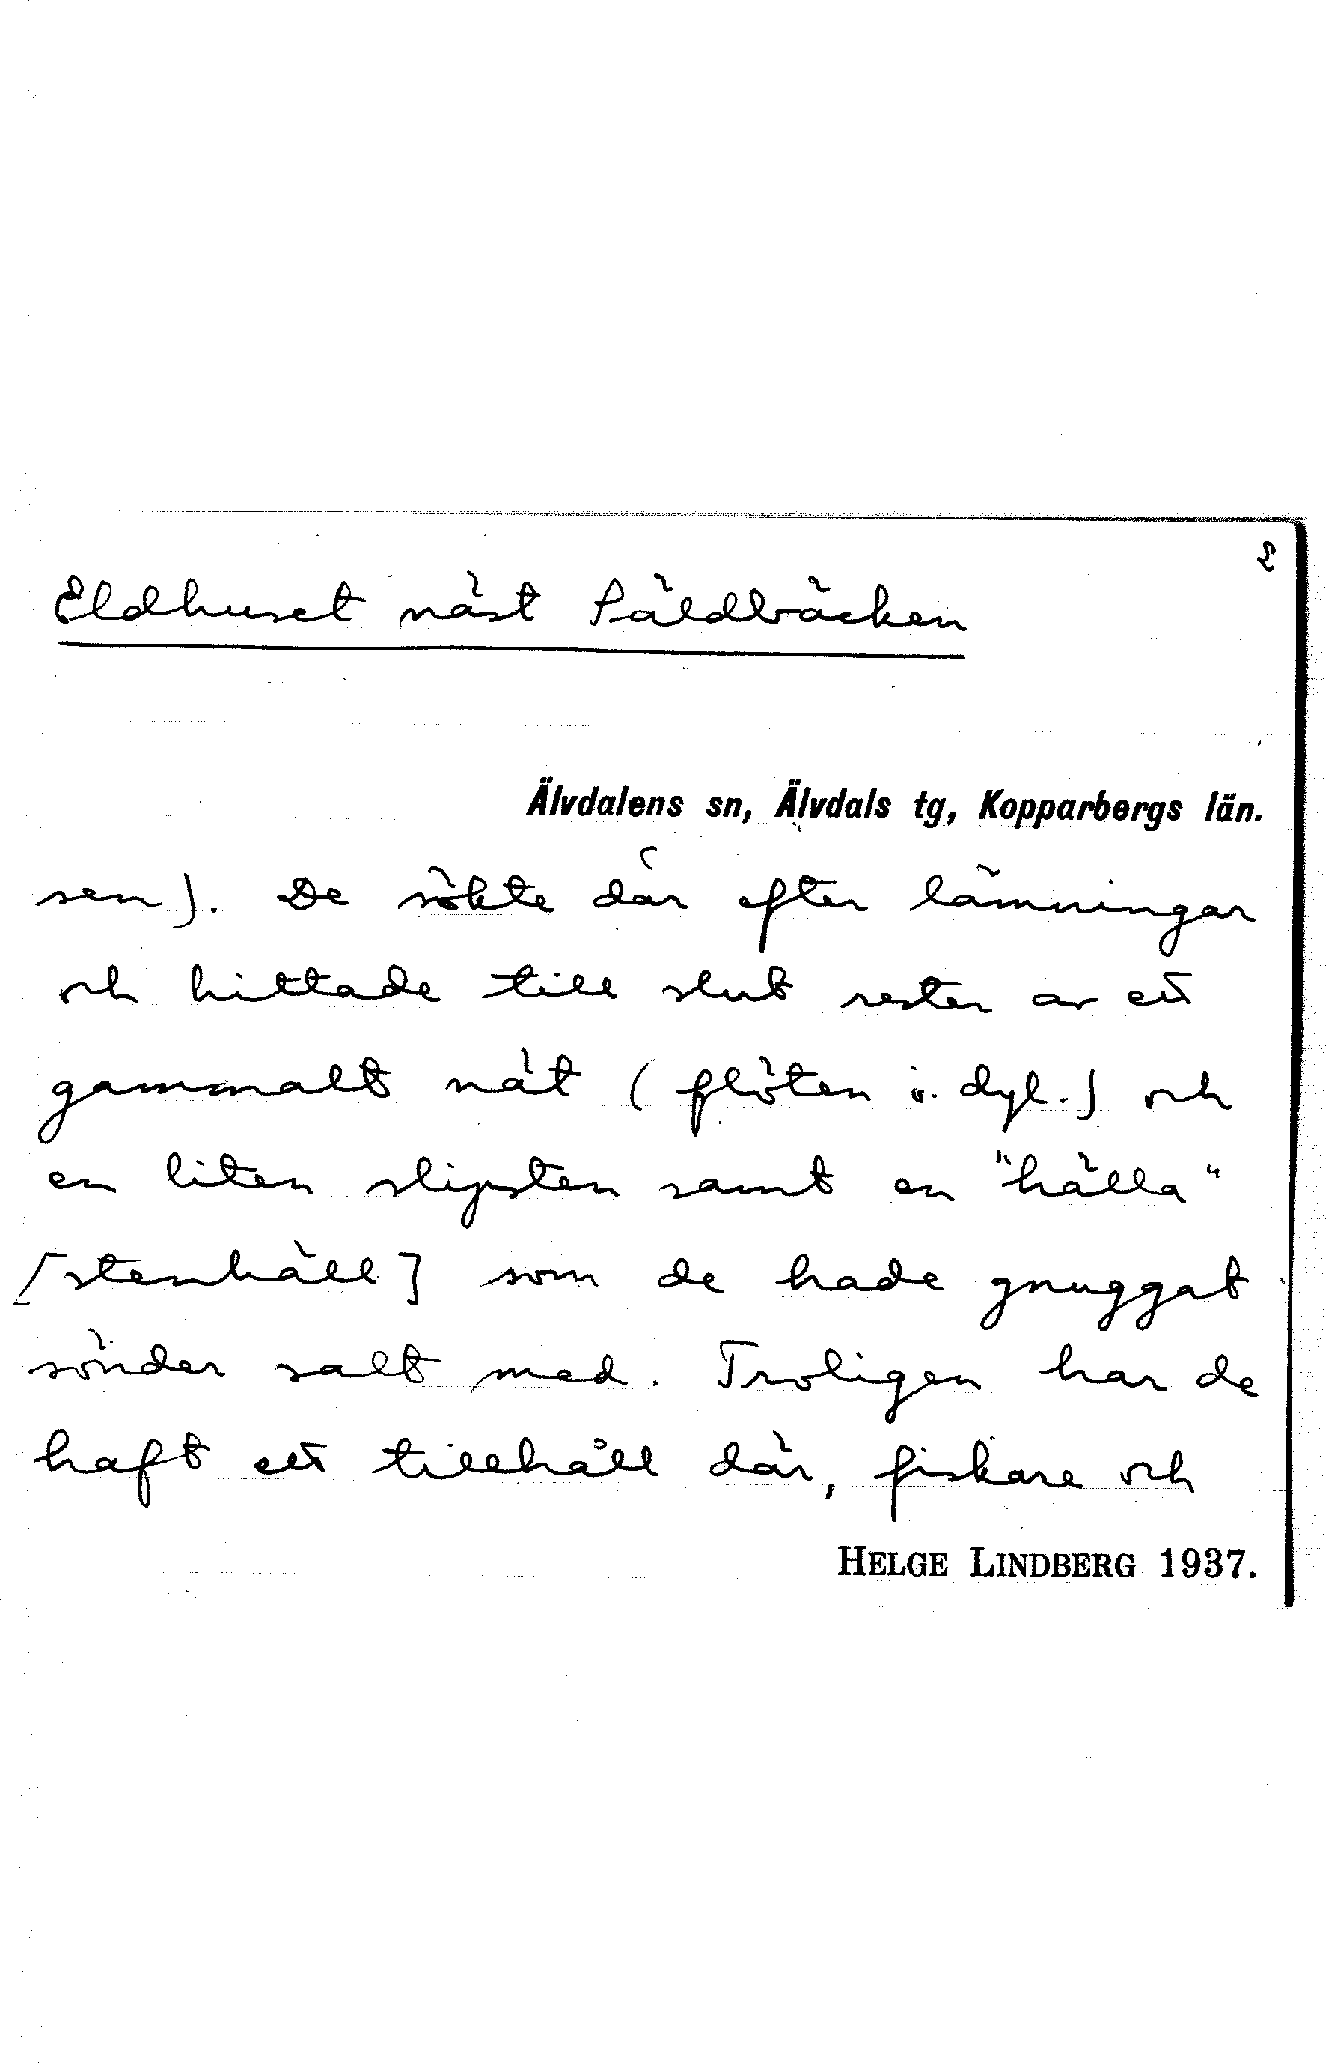 2
Eldhuset näst Säldbäcken
Älvdalens sn, Älvdals tg, Kopparbergs län.
sen). De sökte där efter lämningar
och hittade till slut rester av ett
gammalt nät (flöten o. dyl.) och
en liten slipsten samt en "hälla"
[stenhäll] som de hade gnuggat
sönder salt med. Troligen har de
haft ett tillhåll där, fiskare och
HELGE LINDBERG 1937.